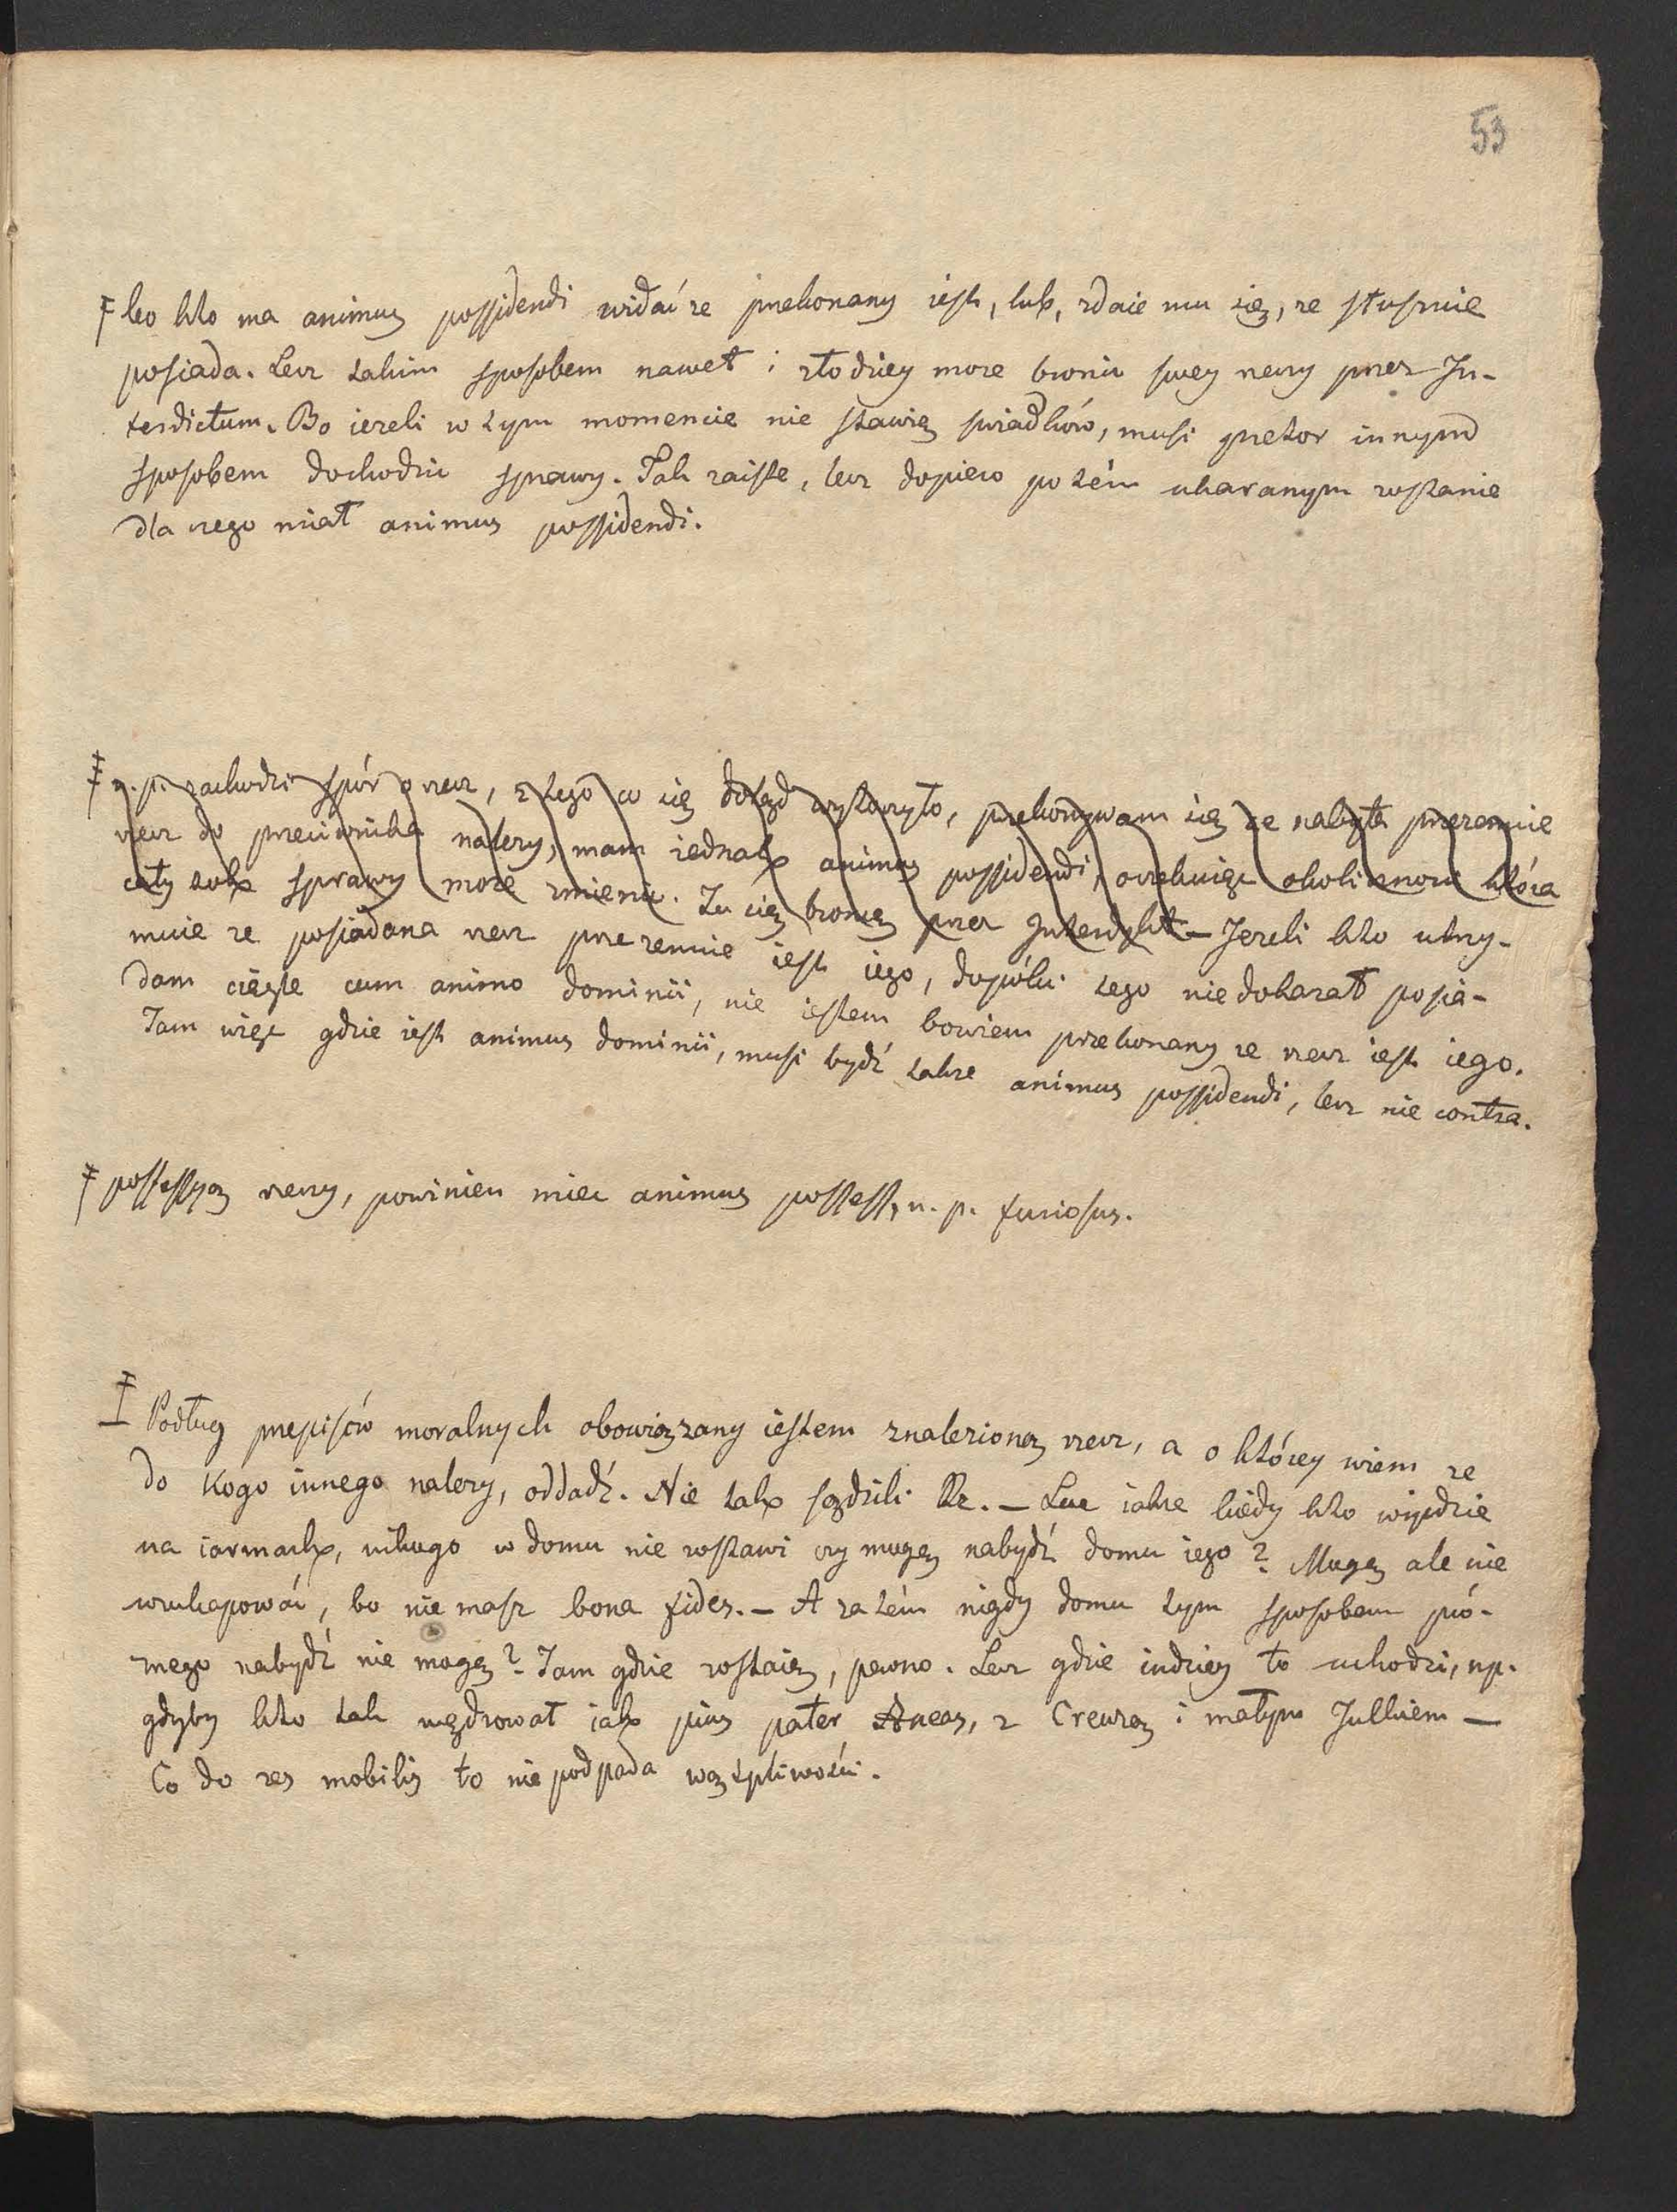 53
‡ bo kto ma animus possidendi widać ze przekonany iest, lub, zdaie mu się, ze słusznie
posiada. Lecz takim sposobem nawet i złodziey moze bronic swey rzeczy przez In-
terdictum. Bo iezeli w tym momencie nie stawię swiadków, musi pretor innym
sposobem dochodzic sprawy. Tak zaiste, lecz dopiero potém ukaranym zostanie
dla czego miał animus possidendi.
‡ n. p. zachodzi spór o rzecz, z tego co się dotąd wytoczyło, przekonywam się ze nabyta przezemnie
rzecz do przeciwnika nalezy, mam iednak animus possidendi, oczekuiąc okolicznosci która
cały tok sprawy moze zmienic. Tu się bronię przez Interdykt. – Jezeli kto utrzy-
muie ze posiadana rzecz przezemnie iest iego, dopóki tego nie dokazał posia-
dam ciągle cum animo dominii, nie iestem bowiem przekonany ze rzecz iest iego.
Tam więc gdzie iest animus dominii, musi bydź takze animus possidendi, lecz nie contra.
‡ possessyą rzeczy, powinien miec animus possess, n. p. furiosus.
‡ Podług przepisów moralnych obowiązany iestem znalezioną rzecz, a o którey wiem ze
do kogo innego nalezy, oddadź. Nie tak sądzili Rz. – Lecz iakze kiedy kto wyidzie
na iarmark, nikogo w domu nie zostawi czy mogę nabydź domu iego? Mogę ale nie
wzukapować, bo nie masz bona fides. – A zatém nigdy domu tym sposobem pró-
znego nabydź nie mogę? Tam gdzie zostaię, pewno. Lecz gdzie indziey to uchodzi, np.
gdyby kto tak wędrował iak pius pater Aneas, z Creuzą i małym Julkiem –
Co do res mobilis to nie podpada wątpliwości.